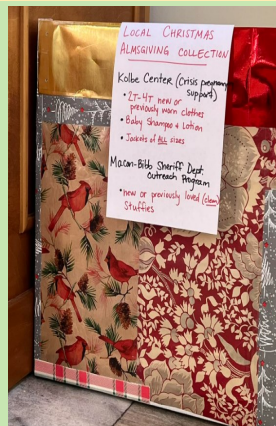 Local Christmas
Almsgiving Collection
Kolbe Center (Crisis pregnancy
support)
• 2T-4T new or
previously worn clothes
• Baby Shampoo & Lotion
• Jackets of ALL sizes
Macon-Bibb Sheriff Dept.
Outreach Program
• new or previously loved (clean)
Stuffies